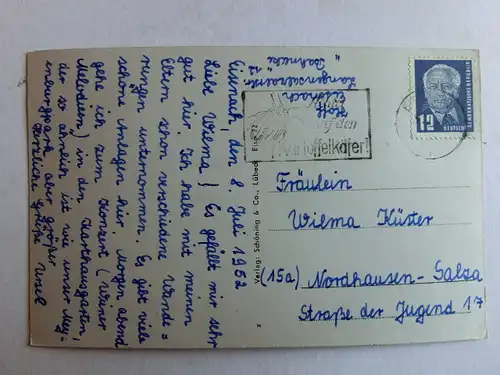 Eisenach, den 8. Juli 1952
Liebe Wilma! Es gefällt mir sehr
gut hier. Ich habe mit meinen
Eltern schon verschiedene Wande=
rungen unternommen. Es gibt viele
schöne Anlagen hier. Morgen abend
gehe ich zum Konzert (Wiener
Melodien) in den Karthausgarten,
der so ähnlich ist wie unser Mey=
enburgpark, aber größer.
Herzliche Grüße Ursel
Eisenach
"Bahnecke"
Verlag: Schöning & Co., Lübeck
den
Kartoffelkäfer!
12
DEUTSCHE
Fräulein
Wilma Küster
(15a) Nordhausen-Salza
Straße der Jugend 17
x